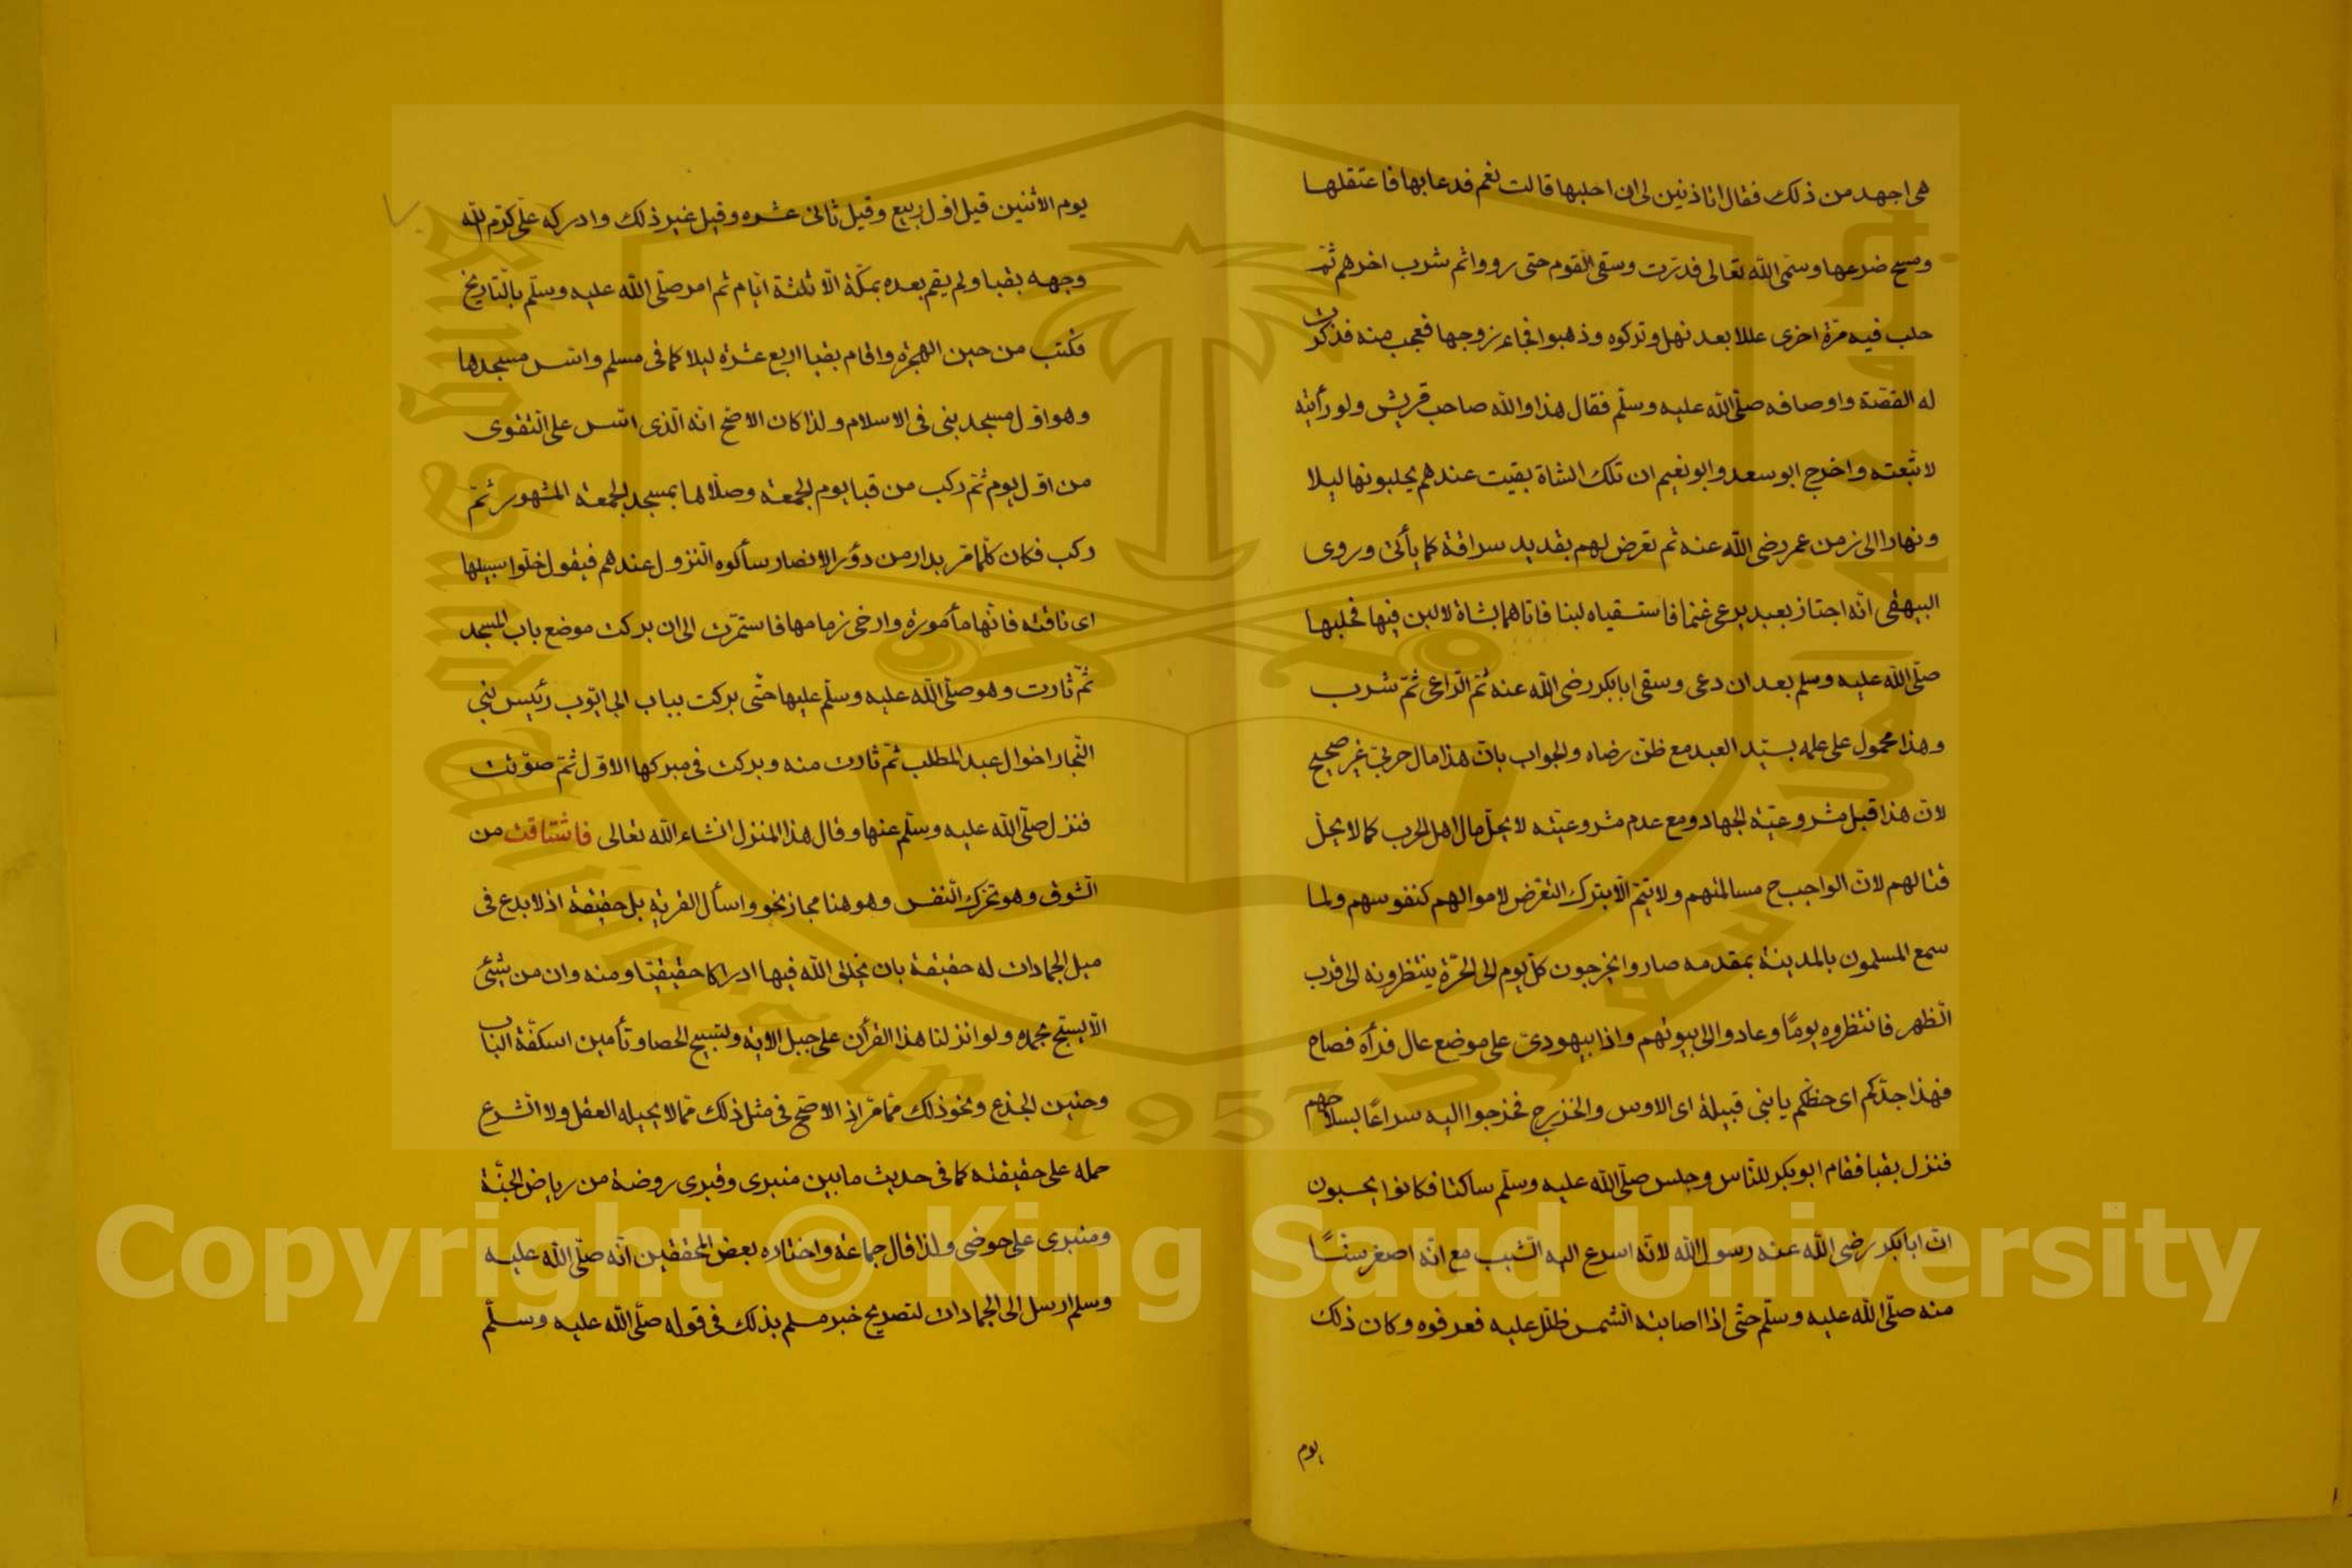 هى اجهد من ذلك فقال اتاذنين لى ان احلبها قالت نعم فدعا بها فاعتقلها
ومسح ضرعها وسمّى الله تعالى فدرّت وسقى القوم حتى رووا ثم شرب اخرهم ثمّ
حلب فيه مرّة اخرى عللا بعد نهل وتركوه وذهبوا فجاء زوجها فعجب منه فذكرت
له القصّة واوصافه صلّى الله عليه وسلّم فقال هذا والله صاحب قريش ولو رأيته
لاتّبعته واخرج ابو سعد وابو نعيم ان تلك الشاة بقيت عندهم يحلبونها ليلا
ونهارا الى زمن عمر رضى الله عنه ثم تعرض لهم بقديد سراقة كما يأتى وروى
البيهقى انّه اجتاز بعبد يرعى غنما فاستسقياه لبنا فاتاهما بشاة لا لبن فيها فحلبها
صلّى الله عليه وسلم بعد ان دعى وسقى ابا بكر رضى الله عنه ثمّ الرّاعى ثمّ شرب
وهذا محمول على علمه بسيّد العبد مع ظنّ رضاه والجواب بانّ هذا مال حربىّ غير صحيح
لانّ هذا قبل مشروعيّة الجهاد ومع عدم مشروعيّته لا يحلّ مال اهل الحرب كما لا يحلّ
قتالهم لانّ الواجب ح مسالمتهم ولا تتمّ الّا بترك التعرّض لاموالهم كنفوسهم ولما
سمع المسلمون بالمدينة بمقدمه صاروا يخرجون كلّ يوم الى الحرّة ينتظرونه الى قرب
الظهر فانتظروه يومًا وعادوا الى بيوتهم واذا بيهودىّ على موضع عال فرأه فصاح
فهذا جدّكم اى حظّكم يا بنى قبيلة اى الاوس والخزرج فخرجوا اليه سراعًا بسلاحهم
فنزل بقبا فقام ابو بكر للنّاس وجلس صلّى الله عليه وسلّم ساكتا فكانوا يحسبون
انّ ابا بكر رضى الله عنه رسول الله لانّه اسرع اليه الشيب مع انّه اصغر سنًّا
منه صلّى الله عليه وسلّم حتّى اذا اصابته الشمس ظلّل عليه فعرفوه وكان ذلك
يوم
يوم الاثنين قيل اوّل ربيع وقيل ثانى عشره وقيل غير ذلك وادركه علّى كرّم الله
وجهه بقبا ولم يقم بعده بمكّة الّا ثلثة ايّام ثم امر صلّى الله عليه وسلّم بالتّاريخ
فكتب من حين الهجرة واقام بقبا اربع عشرة ليلا كما فى مسلم واسّس مسجدها
وهو اوّل مسجد بنى فى الاسلام ولذا كان الاصحّ انه الّذى اسّس على التّقوى
من اوّل يوم ثمّ ركب من قبا يوم الجمعة وصلّاها بمسجد الجمعة المشهور ثمّ
ركب فكان كلّما مّر بدار من دؤر الانصار سألوه النزول عندهم فيقول خلّوا سبيلها
اى ناقته فانّها مأمورة وارخى زمامها فاستمرّت الى ان بركت موضع باب المسجد
ثمّ ثارت وهو صلّى الله عليه وسلّم عليها حتّى بركت بباب ابى ايّوب رئيس بنى
النّجار اخوال عبد المطلب ثمّ ثارت منه وبركت فى مبركها الاوّل ثمّ صوّتت
فنزل صلّى الله عليه وسلّم عنها وقال هذا المنزل انشاء الله تعالى فاشتاقت من
الشوق وهو تحرّك النّفس وهو هنا مجاز نحو واسأل القرية بل حقيقة اذ لا بدع فى
ميل الجمادات له حقيقة بان يخلق الله فيها ادراكا حقيقيّا ومنه وان من شئى
الّا يسبّح بحمده ولو انزلنا هذا القرأن على جبل الاوية ولتسبيح الحصا وتأمين اسكفّة الباب
وحنين الجذع ونحو ذلك ممّا مّر اذ الاصّح فى مثل ذلك ممّا لا يحيله العقل ولا الشرع
حمله على حقيقته كما فى حديث ما بين منبرى وقبرى روضة من رياض الجنّة
ومنبرى على حوضى ولذا قال جماعة واختاره بعض المحققين انّه صلّى الله عليه
وسلم ارسل الى الجمادات لتصريح خبر مسلم بذلك فى قوله صلّى الله عليه وسلّم
جامعة الملك سعود
King Saud University
1957
Copyright © King Saud University